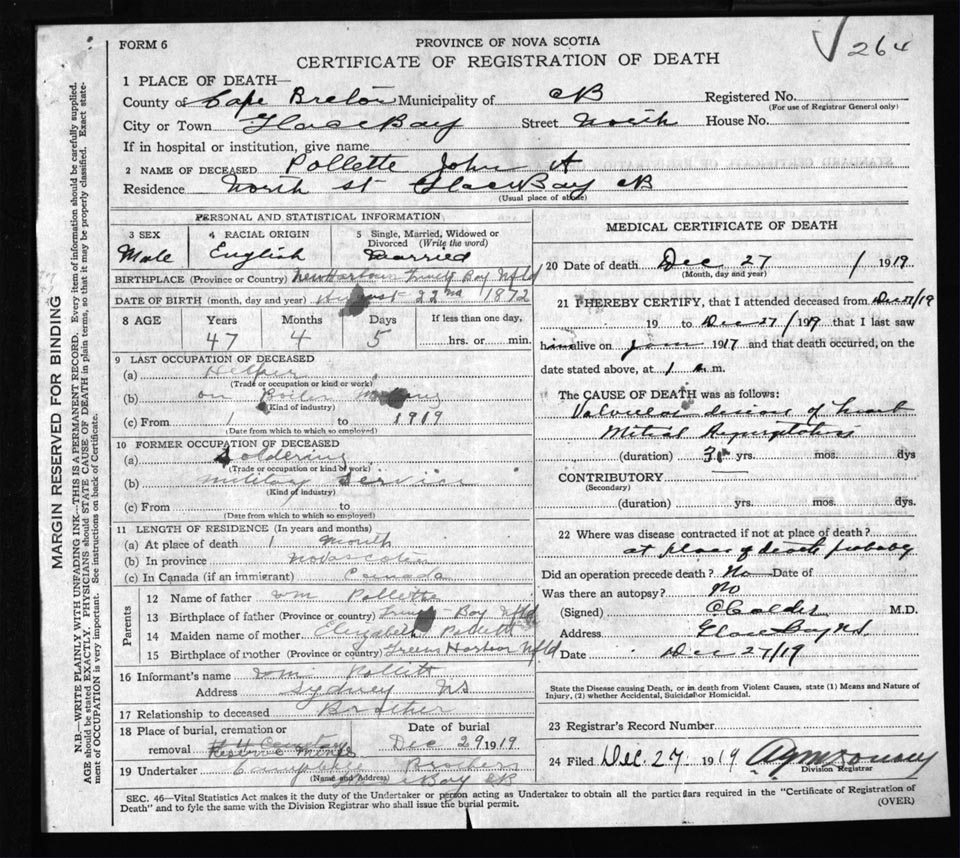 264
FORM 6
PROVINCE OF NOVA SCOTIA
CERTIFICATE OF REGISTRATION OF DEATH
1 PLACE OF DEATH—
County of Cape Breton Municipality of CB Registered No.
(For use of Registrar General only)
City or Town Glace Bay Street North House No.
If in hospital or institution, give name
2 NAME OF DECEASED Pollette John A
Residence North St Glace Bay CB
(Usual place of abode)
PERSONAL AND STATISTICAL INFORMATION
3 SEX 4 RACIAL ORIGIN 5 Single, Married, Widowed or
Divorced (Write the word)
Male English Married
BIRTHPLACE (Province or Country) New Harbour Trinity Bay Nfld
DATE OF BIRTH (month, day and year) August 22nd 1872
8 AGE Years Months Days If less than one day,
47 4 5 hrs. or min.
9 LAST OCCUPATION OF DECEASED
(a) Helper
(Trade or occupation or kind or work)
(b) on Boiler
(Kind of industry)
(c) From 1 to 1919
(Date from which to which so employed)
10 FORMER OCCUPATION OF DECEASED
(a) Soldering
(Trade or occupation or kind of work)
(b) military Service
(Kind of industry)
(c) From to
(Date from which to which so employed)
11 LENGTH OF RESIDENCE (In years and months)
(a) At place of death 1 month
(b) In province Nova Scotia
(c) In Canada (if an immigrant) Canada
Parents
12 Name of father Wm Pollette
13 Birthplace of father (Province or country) Trinity Bay Nfld
14 Maiden name of mother Elizabeth Pollett
15 Birthplace of mother (Province or country) Greens Harbor Nfld
16 Informant's name Wm Pollett
Address Sydney NS
17 Relationship to deceased Brother
18 Place of burial, cremation or Date of burial
removal Reserve Mines Dec 29 1919
19 Undertaker Campbell Brothers
(Name and Address) Bay CB
MEDICAL CERTIFICATE OF DEATH
20 Date of death Dec 27 / 1919
(Month, day and year)
21 I HEREBY CERTIFY, that I attended deceased from Dec 27/19
19 to Dec 27/ 1919 that I last saw
him alive on 1917 and that death occurred, on the
date stated above, at 1 a.m.
The CAUSE OF DEATH was as follows:
Valvular disease of heart
Mitral
(duration) 3 yrs. mos. dys
CONTRIBUTORY
(Secondary)
(duration) yrs. mos. dys.
22 Where was disease contracted if not at place of death?
at place of death probably
Did an operation precede death? No Date of
Was there an autopsy? No
(Signed) C Calder M.D.
Address Glace Bay NS.
Date Dec 27/19
State the Disease causing Death, or in death from Violent Causes, state (1) Means and Nature of
Injury, (2) whether Accidental, Suicidal or Homicidal.
23 Registrar's Record Number
24 Filed Dec. 27 1919
Division Registrar
SEC. 46—Vital Statistics Act makes it the duty of the Undertaker or person acting as Undertaker to obtain all the particulars required in the "Certificate of Registration of
Death" and to fyle the same with the Division Registrar who shall issue the burial permit.
(OVER)
MARGIN RESERVED FOR BINDING
N.B.—WRITE PLAINLY WITH UNFADING INK—THIS IS A PERMANENT RECORD. Every item of information should be carefully supplied.
AGE should be stated EXACTLY. PHYSICIANS should STATE CAUSE OF DEATH in plain terms, so that it may be properly classified. Exact state-
ment of OCCUPATION is very important. See instructions on back of Certificate.